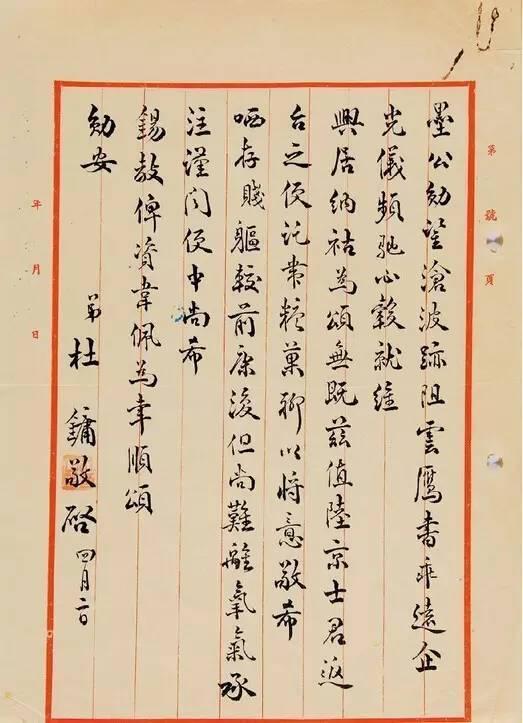 第 號 頁
墨公勛鑒滄波跡阻雲鴈書乖遠企
光儀頻馳心轂就維
興居納祜為頌無既茲值陸京士君返
台之便託帶糉菓聊以將意敬希
哂存賤軀較前康復但尚難離氧氣承
注謹聞便中尚希
錫教俾資韋佩為幸順頌
勛安
弟杜鏞敬啓四月二日
年 月 日